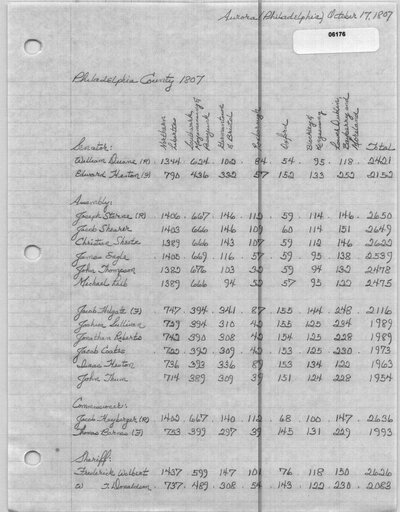 Aurora (Philadelphia) October 17, 1807
06176
Philadelphia County 1807
Northern Liberties
Southwark Moyamensing & Passyunk
Germantown & Bristol
Roxborough
Oxford
Total
Senator:
William Duane (R) 1344 624 102 84 54 95 118 2421
Edward Heston (F) 790 436 332 57 152 133 252 2152
Assembly:
Joseph Starne (R) 1406 667 146 112 59 114 146 2650
Jacob Shearer 1403 666 146 109 60 114 151 2649
Christian 1389 666 143 107 59 112 146 2622
James Engle 1405 669 116 57 59 95 138 2539
John Thompson 1382 676 103 32 59 94 132 2478
Michael Leib 1389 666 94 52 57 95 122 2475
Jacob Holgate (F) 747 394 341 87 155 144 248 2116
Joshua Sullivan 729 394 310 42 155 125 234 1989
Jonathan Roberts 742 390 308 42 154 125 228 1989
Jacob Coats 722 392 309 42 153 125 230 1973
Isaac Heston 736 393 336 89 153 134 122 1963
John Thum 714 389 309 39 151 124 228 1954
Commissioner:
Jacob Humberger (R) 1402 667 140 112 68 100 147 2636
Thomas Barnes (F) 753 399 297 39 145 131 229 1993
Sheriff:
Frederick Wolbert 1437 599 147 101 76 118 150 2626
W T. Donaldson 737 489 308 54 143 122 230 2083